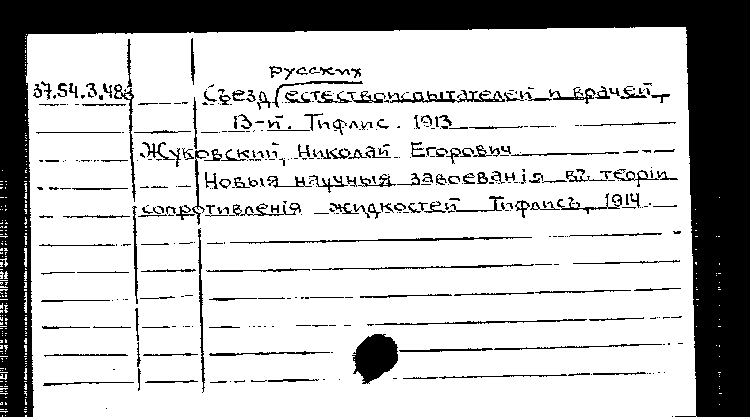 русских
37.54.3.486 Съезд естествоиспытателей и врачей,
13-й. Тифлис. 1913
Жуковский, Николай Егорович
Новыя научныя завоеванія въ теоріи
сопротивленія жидкостей Тифлисъ, 1914.